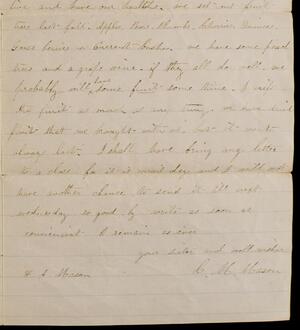 live and have our health. we set out fruit
trees last fall. Apples, Pears, Plumbs, Cherries, Quinces,
Goose berries & Currant bushes. we have some peach
trees and a grape vine. if they all do well, we
probably will have some fruit some time. I wish
the fruit as much as any thing. we have dried
fruit that we brought with us, but it wont
always last. I shall have bring my letter
to a close for it is mail day and I will not
have another chance to send it till next
wednesday so good by write as soon as
convenient I remain as ever
your sister and well wisher
C. M. Mason
A Mason